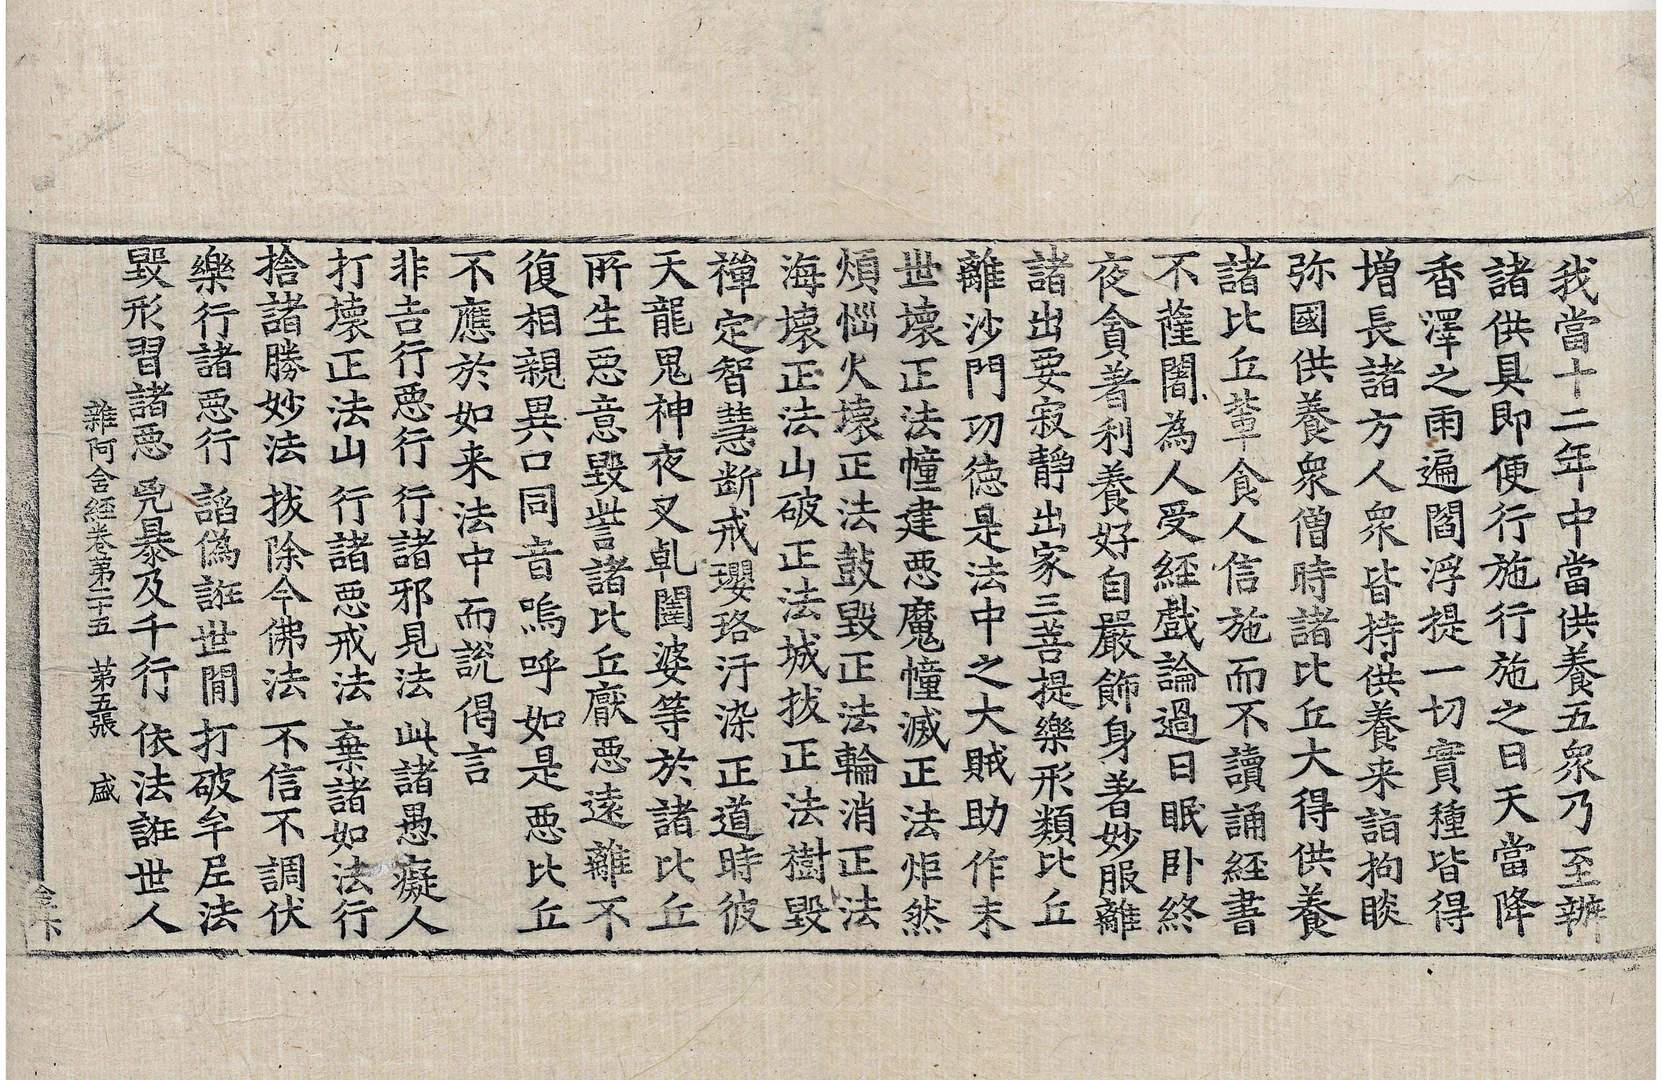 我當十二年中當供養五衆乃至辦
諸供具即便行施行施之日天當降
香澤之雨遍閻浮提一切實種皆得
增長諸方人衆皆持供養来詣拘睒
弥國供養衆僧時諸比丘大得供養
諸比丘輩食人信施而不讀誦経書
不薩闍為人受経戲論過日眠卧終
夜貪著利養好自嚴飾身著妙服離
諸出要寂静出家三菩提樂形類比丘
離沙門功徳是法中之大賊助作末
世壞正法幢建惡魔幢滅正法炬然
煩惱火壞正法鼓毀正法輪消正法
海壞正法山破正法城拔正法樹毀
禪定智慧斷戒瓔珞汙染正道時彼
天龍鬼神夜叉乹闥婆等於諸比丘
所生惡意毀訾諸比丘厭惡遠離不
復相親異口同音嗚呼如是惡比丘
不應於如来法中而說偈言
非吉行惡行 行諸邪見法 此諸愚癡人
打壞正法山 行諸惡戒法 棄諸如法行
捨諸勝妙法 拔除今佛法 不信不調伏
樂行諸惡行 謟偽誑世閒 打破牟尼法
毀形習諸惡 兇暴及千行 依法誑世人
雜阿含経卷第二十五 第五張 盛